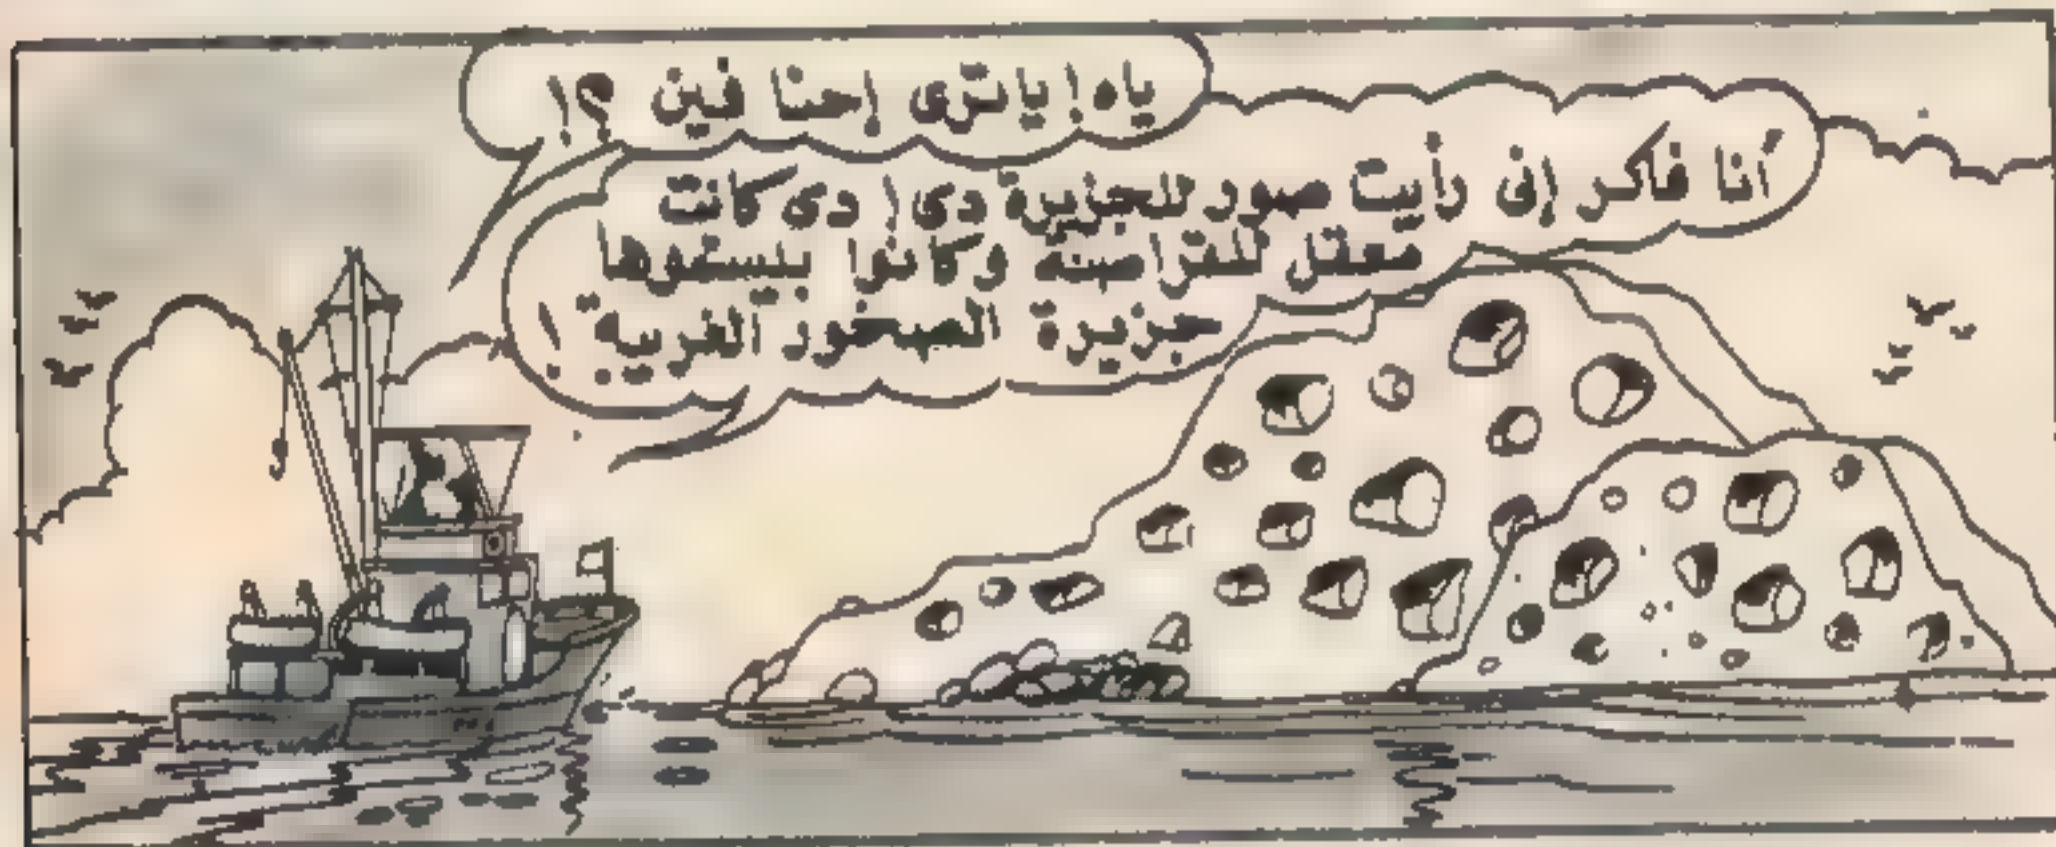 ياه! ياترى إحنا فين ؟!
أنا فاكر إنى رأيت صور للجزيرة دى! دى كانت
معقل للقراصنة وكانوا بيسموها
جزيرة الصخور الغريبة!